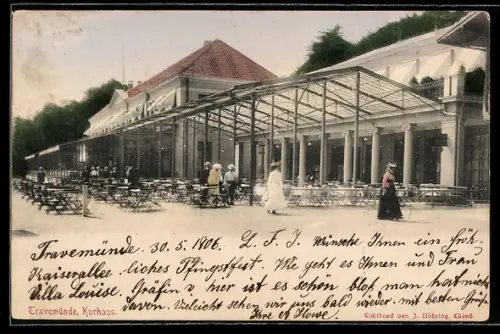 Travemünde 30. 5. 1906. L. F. J. Wünsche Ihnen ein fröh-
Kaiserallee liches Pfingstfest. Wie geht es Ihnen und Frau
Villa Louise. Gräfin, hier ist es schön bloß man hat nichts
davon. Vieleicht sehen wir uns bald wieder. mit besten Grüße
Ihre
Travemünde, Kurhaus.
Lichtdruck von J. Nöhring, Lübeck.